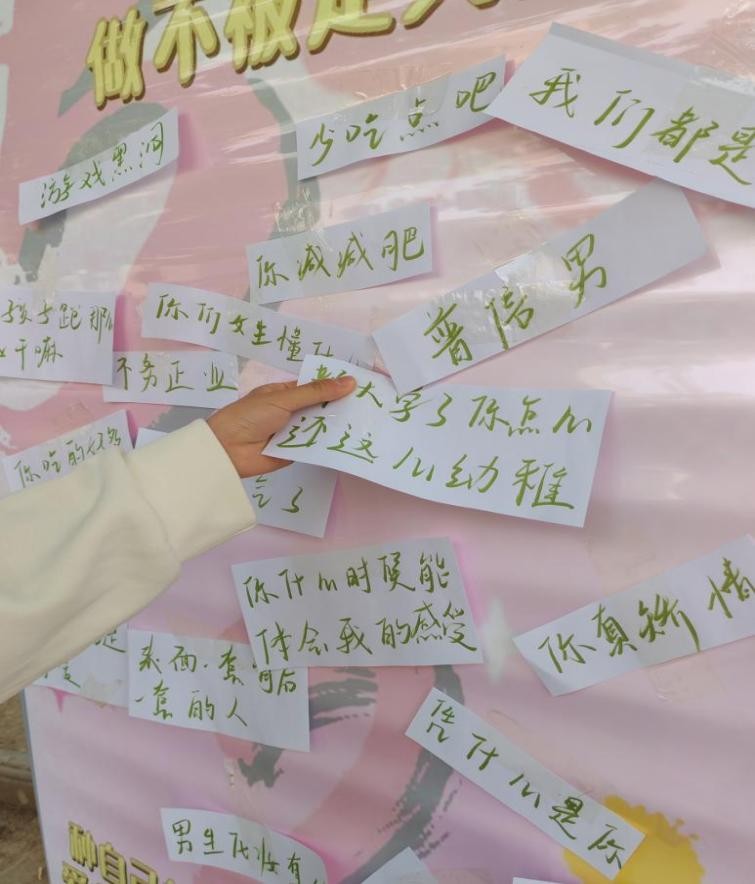 做不被定义
少吃点吧
我们都是
游戏黑洞
你减减肥
普信男
你们女生懂什
干嘛
不务正业
都大学了你怎么
还这么幼稚
你吃的好多
了
你什么时候能
体会我的感受
你真矫情
表面一套背后
一套的人
凭什么是你
男生化妆有
种自己